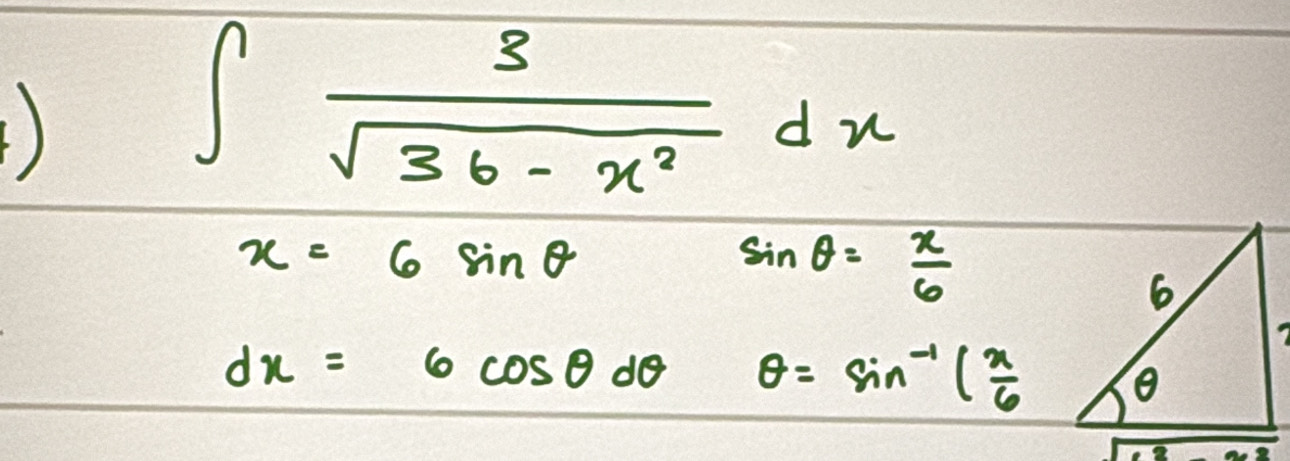 ) ∫ 3 / √(36 - x²) dx
x = 6 sin θ sin θ = x/6 6
dx = 6 cos θ dθ θ = sin⁻¹ (x/6 θ